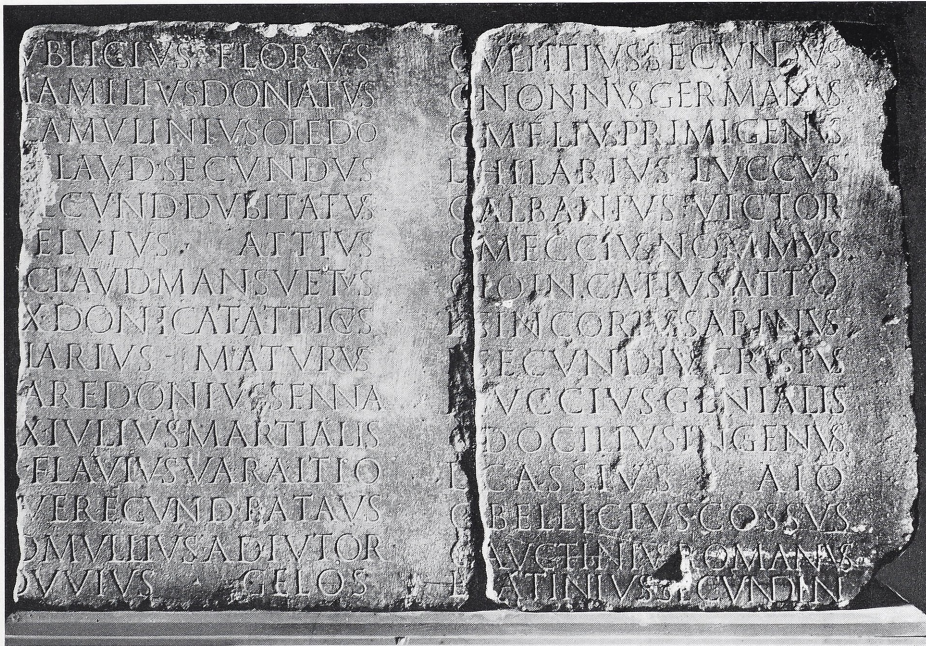 VBLICIVS FLORVS
AMILIVS DONATVS
AMVLINIVS OLEDO
LAVD SECVNDVS
ECVND DVBITATVS
ELVIVS ATTIVS
CLAVD MANSVETVS
X DONICAT ATTICVS
IARIVS MATVRVS
AREDONIVS SENNA
X IVLIVS MARTIALIS
FLAVIVS VARAITIO
VERECVND BATAVS
OMVLLIVS ADIVTOR
DVVIVS GELOS
C VLITTIVS SECVNDVS
C NONNVS GERMANVS
C MELIVS PRIMIGENIVS
L HILARIVS LVCCVS
C ALBANIVS VICTOR
C MECCIVS NOMMVS
ATTO
L SINCORIVS SABINVS
SECVNDIV CRISPVS
VCCIVS GENIALIS
DOCILIVS INGENVS
L CASSIVS AIO
C BELLICIVS COSSVS
C AVCTINIVS ROMANVS
L LATINIVS SECVNDIN